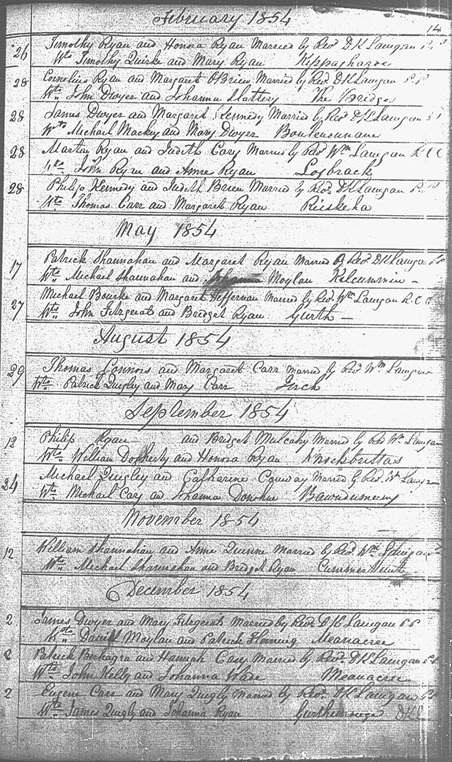 February 1854
14
26 Timothy Ryan and Honora Ryan Married by Revd D K Lanigan P.P
Wts Timothy Quirke and Mary Ryan
28 Cornelius Ryan and Margaret O'Brien Married by Revd D K Lanigan P.P
Wts John Dwyer and Johanna Slattery The Bridge
28 James Dwyer and Margaret Kennedy Married by Revd D K Lanigan
Wts Michael Macky and Mary Dwyer
28 Martin Ryan and Judith Cary Married by Revd Wm Lanigan R C C
John Ryan and Anne Ryan Losbrack
28 Philip Kennedy and Judith Brien Married by Revd D K Lanigan P.P
Wts Thomas Carr and Margaret Ryan
May 1854
17 Patrick Shannahan and Margaret Ryan Married by Revd D K Lanigan
Wts Michael Shannahan and Moylan Kilcummin
27 Michael Bourke and Margaret Heffernan married by Revd Wm Lanigan R.C.C
Wts John Fitzgerald and Bridget Ryan
August 1854
29 Thomas Connors and Margaret Carr married by Revd Wm Lanigan
Wts Patrick Quigly and Mary Carr
September 1854
12 Philip Ryan and Bridget Mulcahy Married by Revd Wm Lanigan
Wts William Dogherty and Honora Ryan Knockbuttas
24 Michael Quigley and Catharine Married by Revd Wm Lanigan
Wts Michael Cary and Johanna Donohue
November 1854
12 William Shannahan and Anne Quinne Married by Revd Wm Lanigan
Wts Michael Shannahan and Bridget Ryan
December 1854
2 James Dwyer and Mary Fitzgerald Married by Revd D K Lanigan P P
Wts Daniel Moylan and Patrick Fleming Meanacree
2 Patrick and Hannah Casy Married by Revd D K Lanigan P.P
Wts John Kelly and Johanna Wade Meanacree
2 Eugene Carr and Mary Quigly Married by Revd D K Lanigan
Wts James Quigly and Johanna Ryan